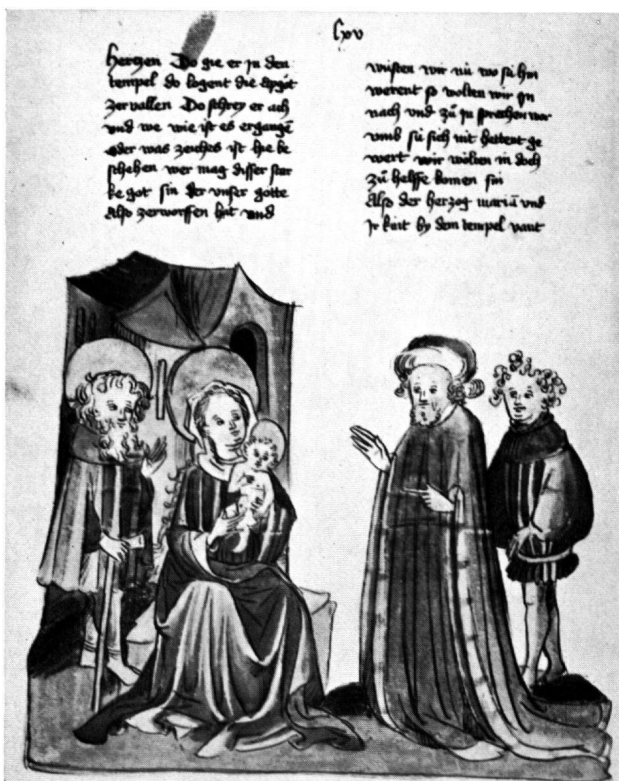 lxv
hertzen Do gie er jn den
tempel do logent die apgöt
zervallen Do schrey er ach
und we wie ist es ergangē
oder was zeiches ist hie be
schehen wer mag disser star
ke got sin der unser gotte
Also zerworffen hat und
wüsten wir nü wo sü hin
werent so wolten wir jn
nach und zü jn sprechen war
umb sü sich nit hettent ge
wert wir wölten in doch
zü helffe komen sin
Also der herzog mariā und
jr kint by dem tempel vant